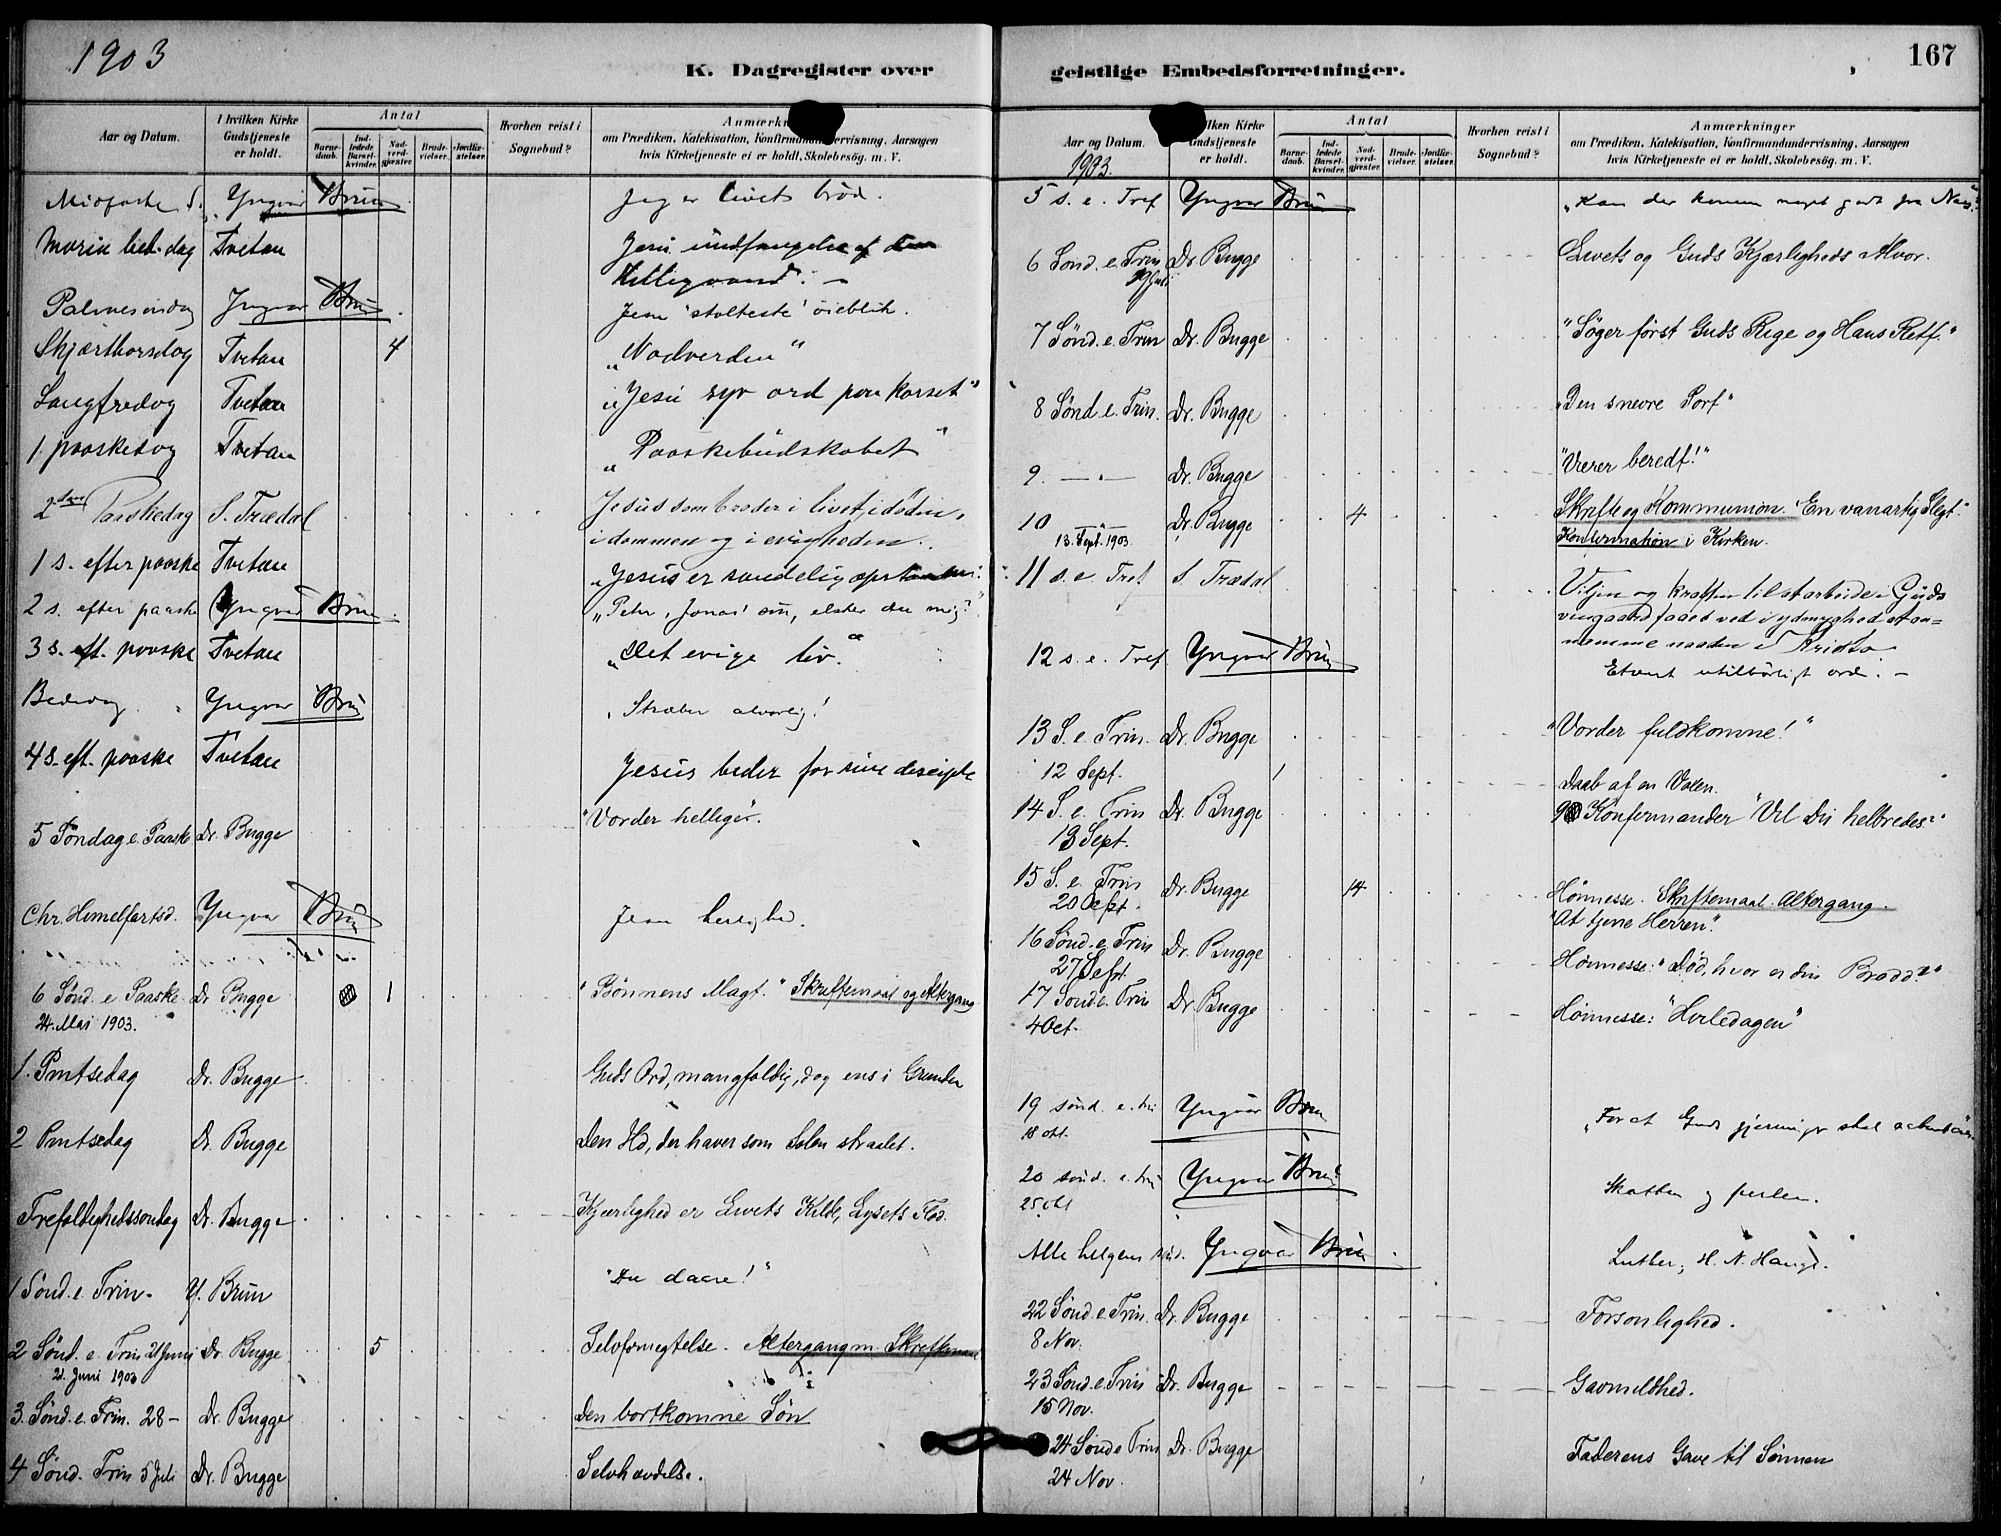 1903
K. Dagregister over
Aar og Datum.
I hvilken Kirke Gudstjeneste er holdt.
Antal
Barnedaab.
Indledede Barselkvinder.
Nadverdgjester.
Brudevielser.
Jordfæstelser.
Hvorhen reist i Sognebud?
om Prædiken, Katekisation, Konfirmandundervisning, Aarsagen
hvis Kirketjeneste ei er holdt, Skolebesög. m. V.
Midfaste S. Yngvar Brun Jeg er livets brød.
Mariæ beb. dag Tvetan Jesu undfangelse af den
Helligaand. –
Palmesøndag Yngvar Brun Jesu 'stolteste' øieblik.
Skjærthorsdag Tvetan 4 „Nadverden"
Langfredag Tvetan „Jesu syv ord paa korset"
1. paaskedag Tvetan „Paaskebudskabet"
2den Paaskedag S. Trædal Jesus som broder i livet, i døden,
i dommen og i evigheden.
1 s. efter paaske Tvetan „Jesus er sandelig opstanden"
2 s. efter paaske Yngvar Brun „Peter, Jonas' søn, elsker du mig?"
3 s. eft. paaske Tvetan „Det evige liv."
Bededag Yngvar Brun Stræber alvorlig!
4 s. eft. paaske Tvetan Jesus beder for sine disciple
5 Søndag e. Paaske Dr. Bugge "Vorder hellige".
Chr. Himelfartsd. Yngvar Brun Jesu herlighed.
6 Sønd. e. Paaske Dr. Bugge 1 "Bønnens Magt." Skriftemaal og Altergang
24. Mai 1903.
1. Pintsedag Dr. Bugge Guds Ord, mangfoldig, dog ens i Grunden
2 Pintsedag Dr. Bugge Den Hd, der haver som Solen straalet.
Trefoldighedssøndag Dr. Bugge Kjærlighed er Livets Kilde, Lysets Flod.
1 Sønd. e. Trin. Y. Brun "Du daare!"
2 Sønd. e. Trin 21 Juni Dr. Bugge 5 Selvfornegtelse. Altergang m. Skriftemaal
21. Juni 1903
3. Sønd. e. Trin. 28 – Dr. Bugge Den bortkomne Søn
4 Sønd. Trin 5 Juli Dr. Bugge Selvhævdelse.
167
geistlige Embedsforretninger.
Aar og Datum.
Gudstjeneste er holdt.
Antal
Barnedaab.
Indledede Barselkvinder.
Nadverdgjester.
Brudevielser.
Jordfæstelser.
Hvorhen reist i Sognebud?
Anmærkninger
om Prædiken, Katekisation, Konfirmandundervisning, Aarsagen
hvis Kirketjeneste ei er holdt, Skolebesög. m. V.
1903.
5 s. e. Tref Yngvar Brun „Kan der komme noget godt fra
6 Sønd. e. Trin Dr. Bugge Livets og Guds Kjærligheds Alvor.
7 Sønd. e. Trin Dr. Bugge "Søger først Guds Rige og Hans Retf."
8 Sønd. e. Trin. Dr. Bugge "Den snevre Port"
9. — " — Dr. Bugge "Værer beredt!"
10 — " — Dr. Bugge 4 Skrifte og Kommunion. "En vanartig Slegt."
13. Sept. 1903. Konfirmation i Kirken.
11 s. e. Tref S. Trædal Viljen og kraften til at arbeide i Guds
vingaard faaes ved i ydmyghed at an=
nemme naaden i Kristo.
12 s. e. Tref Yngvar Brun Ethvert utilbørligt ord. –
13 S. e. Trin. Dr. Bugge "Vorder fuldkomne!"
12 Sept. 1 Daab af en Voxen.
14 S. e. Trin Dr. Bugge Konfirmander "Vil Du helbredes?"
13 Sept.
15 S. e. Trin Dr. Bugge 14 Høimesse. Skriftemaal. Altergang.
20 Sept. "At tjene Herren."
16 Sønd. e. Trin Dr. Bugge Høimesse: "Død, hvor er din Brodd?"
27 Sept.
17 Sønd. e. Trin Dr. Bugge Høimesse: "Hviledagen"
4 Oct.
19 sønd. e. tri Yngvar Brun „For at Guds gjerninger skal
18 okt.
20 sønd. e. tri Yngvar Brun Skatten og perlen.
25 okt
Alle helgens sønd. Yngvar Brun Luther, H. N. Hauge.
22 Sønd. e. Trin. Dr. Bugge Forsonlighed.
8 Nov.
23 Sønd. e. Trin Dr. Bugge Gavmildhed.
15 Nov.
24 Sønd e Trin Dr. Bugge Faderens Gave til Sønnen
24 Nov.